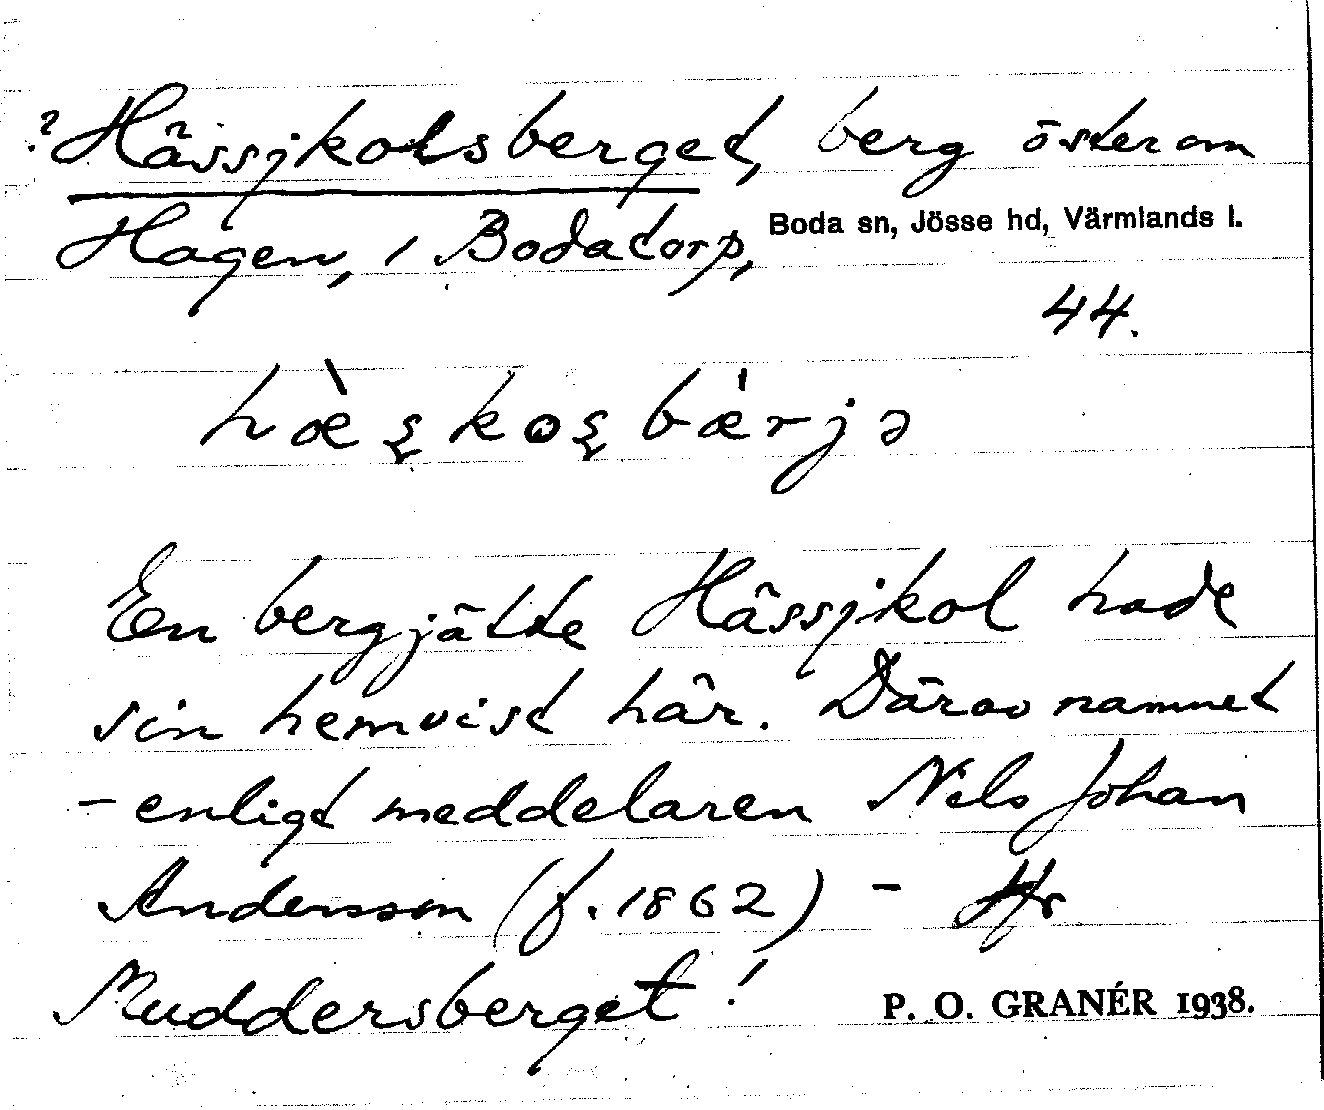 ? Hässjkolsberget, berg öster om
Hagen, i Bodatorp, Boda sn, Jösse hd, Värmlands l.
44.
hæ̀ʂkoʂbǽrjə
En bergjätte Hässjkol hade
sin hemvist här. Därav namnet
– enligt meddelaren Nils Johan
Andersson (f. 1862) – Jfr
Muddersberget! P. O. GRANÉR 1938.